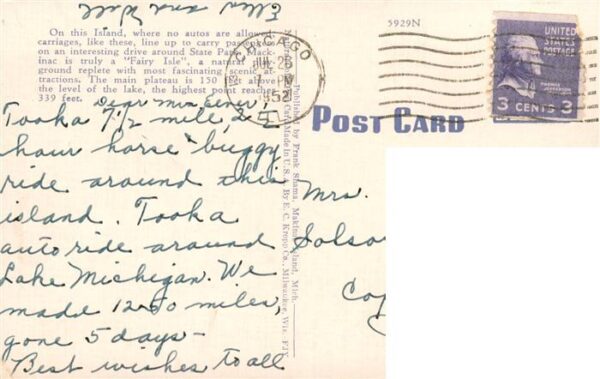 On this Island, where no autos are allowed,
carriages, like these, line up to carry passengers
on an interesting drive around State Park. Mack-
inac is truly a "Fairy Isle", a natural play-
ground replete with most fascinating scenic at-
tractions. The main plateau is 150 feet above
the level of the lake, the highest point reaches
339 feet.
Dear Mrs.
Took a 7 1/2 mile, 2
hour horse & buggy
ride around this
island. Took a
auto ride around
Lake Michigan. We
made 1250 miles,
gone 5 days-
Best wishes to all
Published by Frank Shama, Mackinac Island, Mich.
Card Made in U. S. A. By E. C. Kropp Co., Milwaukee, Wis.
5929N
CHICAGO
1952
POST CARD
UNITED
STATES
POSTAGE
THOMAS
JEFFERSON
3 CENTS 3
Mrs.